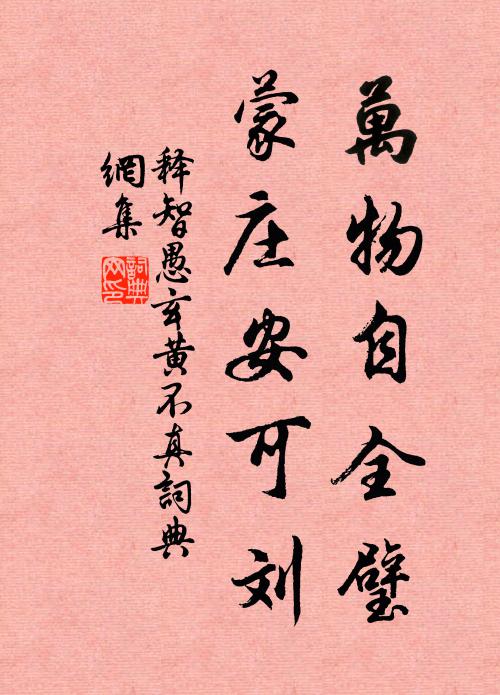 萬物自全璧
蒙庄安可刘
释智愚玄黄不真詞典
網集
詞典網印